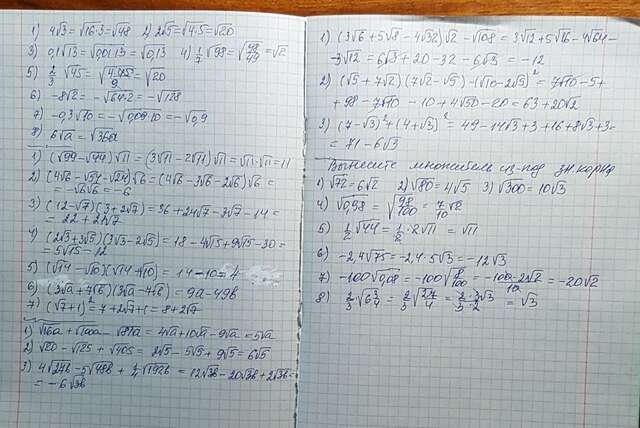 1) 4√3 = √16·3 = √48   2) 2√5 = √4·5 = √20
3) 0,1√13 = √0,01·13 = √0,13   4) 1/7 √98 = √98/49 = √2
5) 2/3 √45 = √4·45/9 = √20
6) -8√2 = -√64·2 = -√128
7) -0,3√10 = -√0,09·10 = -√0,9
8) 6√a = √36a
1) (√99 - √44)√11 = (3√11 - 2√11)√11 = √11·√11 = 11
2) (4√6 - √54 - √24)√6 = (4√6 - 3√6 - 2√6)√6 =
= -√6√6 = -6
3) (12-√7)(3+2√7) = 36 + 24√7 - 3√7 - 14 =
= 22 + 21√7
4) (2√3+3√5)(3√3-2√5) = 18 - 4√15 + 9√15 - 30 =
= 5√15 - 12
5) (√14 - √10)(√14 + √10) = 14 - 10 = 4
6) (3√a + 7√b)(3√a - 7√b) = 9a - 49b
7) (√7+1)² = 7 + 2√7 + 1 = 8 + 2√7
1) √16a + √100a - √81a = 4√a + 10√a - 9√a = 5√a
2) √20 - √125 + √405 = 2√5 - 5√5 + 9√5 = 6√5
3) 4√27b - 5√48b + 1/4 √192b = 12√3b - 20√3b + 2√3b =
= -6√3b
1) (3√6 + 5√8 - 4√32)√2 - √108 = 3√12 + 5√16 - 4√64 -
- 3√12 = 6√3 + 20 - 32 - 6√3 = -12
2) (√5 + 7√2)(7√2 - √5) - (√10 - 2√5)² = 7√10 - 5 +
+ 98 - 7√10 - 10 + 4√50 - 20 = 63 + 20√2
3) (7-√3)² + (4+√3)² = 49 - 14√3 + 3 + 16 + 8√3 + 3 =
= 71 - 6√3
Вынесите множитель из-под зн. корня
1) √72 = 6√2   2) √80 = 4√5   3) √300 = 10√3
4) √0,98 = √98/100 = 7/10 √2
5) 1/2 √44 = 1/2 · 2√11 = √11
6) -2,4√75 = -2,4·5√3 = -12√3
7) -100√0,08 = -100√8/100 = -100·2√2/10 = -20√2
8) 2/3 √6 3/4 = 2/3 √27/4 = 2·3√3/3·2 = √3